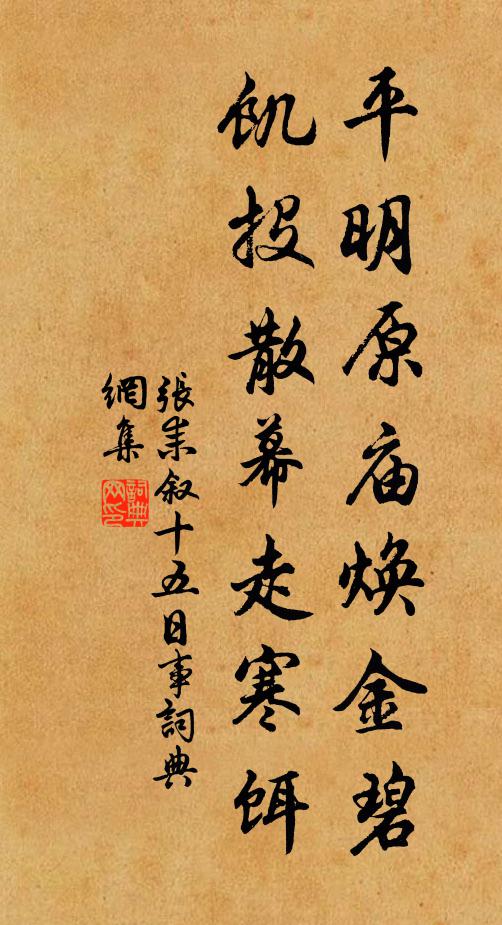 平明原庙焕金碧
飢投散幕走寒饵
張耒叙十五日事詞典
網集
詞典
网印